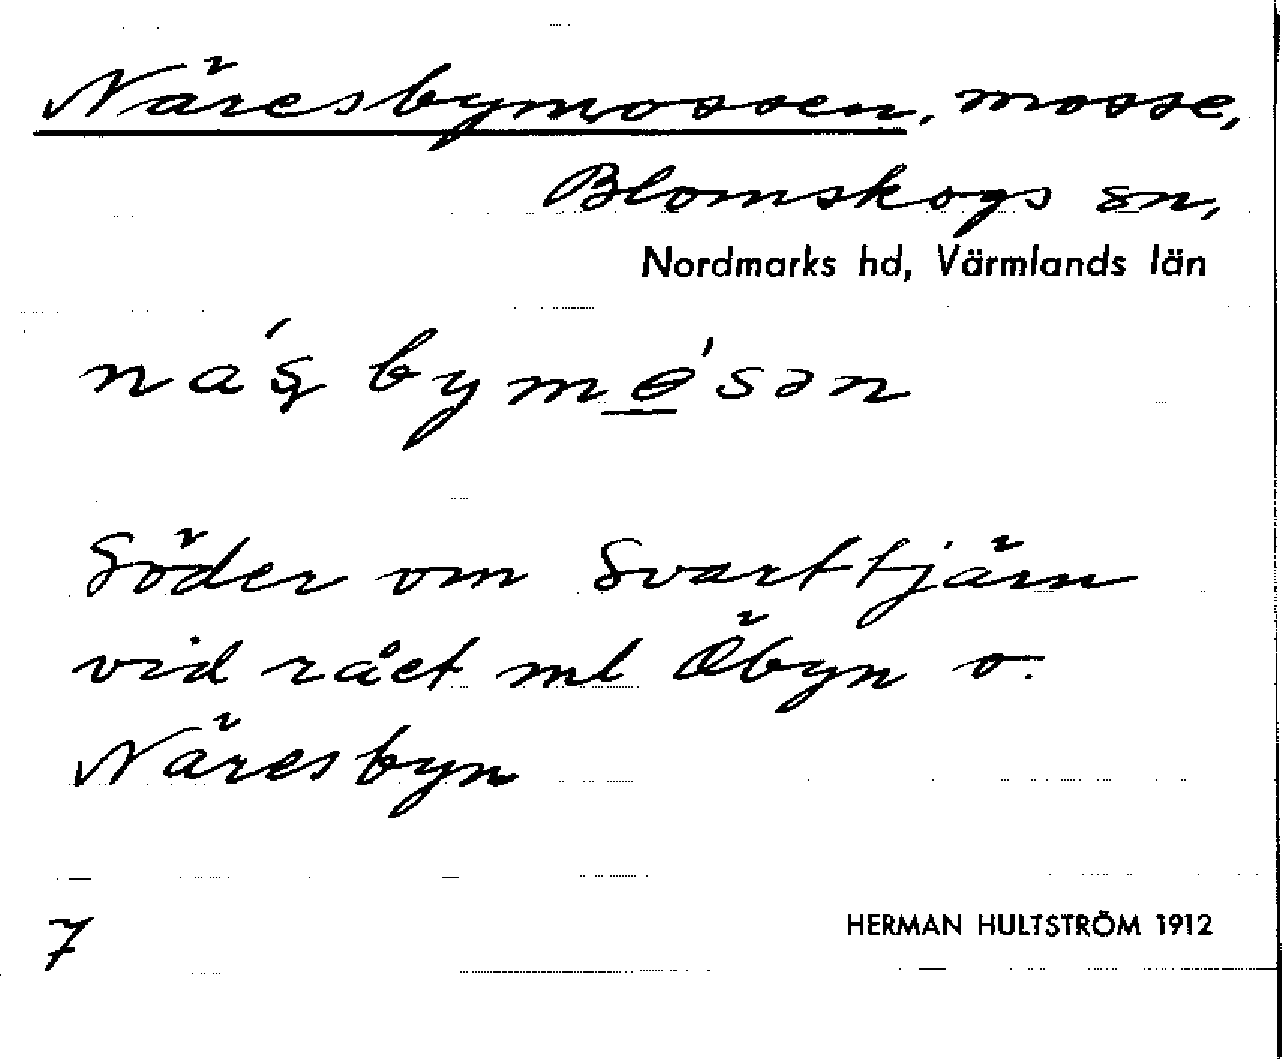 Näresbymossen, mosse,
Blomskogs sn,
Nordmarks hd, Värmlands län
Söder om Svarttjärn
vid rået ml Öbyn o.
Näresbyn
7
HERMAN HULTSTRÖM 1912